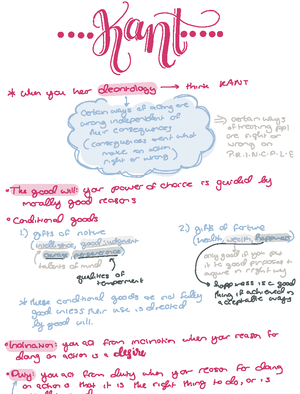 Kant
* when you hear deontology → think KANT
certain ways of wrong are
wrong independent of
their consequences
(consequences won't what
make an action
right or wrong)
⇒ certain ways
of treating ppl
are right or
wrong on
P.R.I.N.C.I.P.L.E
• The good will: your power of choice is guided by
morally good reasons
• Conditional goods
1) gifts of nature
(intelligence, good judgment
courage, perseverance)
talents of mind
qualities of
temperment
2) gifts of fortune
(health, wealth, happiness)
only good if you put
it to good purposes +
acquire in right way
↳ happiness is a good
thing if achieved in
acceptable ways
* these conditional goods are not fully
good unless their use is directed
by good will.
• Inclination: you act from inclination when your reason for
doing an action is a desire
• Duty: you act from duty when your reason for doing
an action is that it is the right thing to do, or is